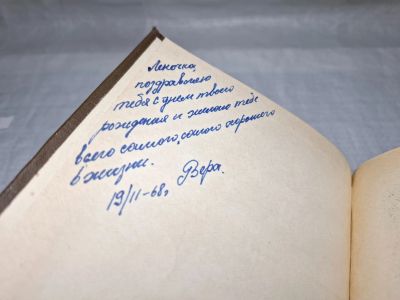 Леночка,
поздравляю
тебя с днем твоего
рождения и желаю тебе
всего самого, самого хорошего
в жизни.
Вера.
19/II-68г